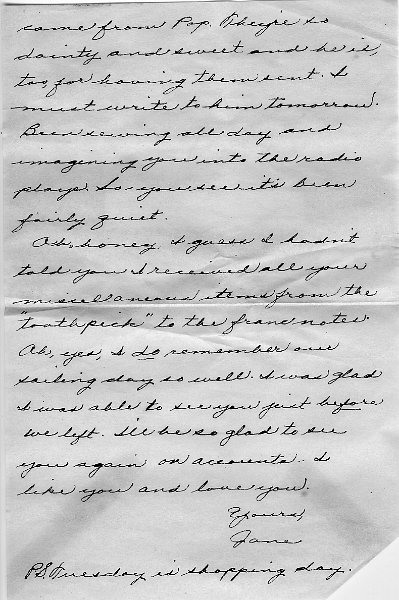 came from Pop. They're so
dainty and sweet and he is,
too for having them sent. I
must write to him tomorrow.
Been sewing all day and
imagining you into the radio
plays. So you see it's been
fairly quiet.
Oh, honey, I guess I hadn't
told you I received all your
miscellaneous items from the
"toothpick" to the franc notes.
Ah, yes, I do remember our
sailing day so well. I was glad
I was able to see you just before
we left. I'll be so glad to see
you again on accounta. I
like you and love you.
Yours,
Jane
P.S. Tuesday is shopping day.